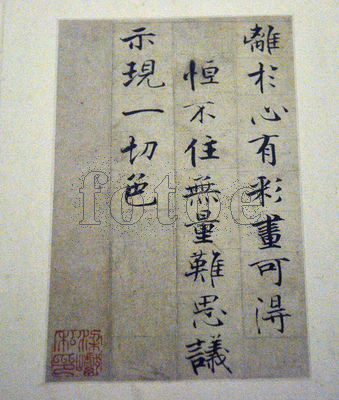 離於心有彩畫可得
恒不住無量難思議
示現一切色
fotoe